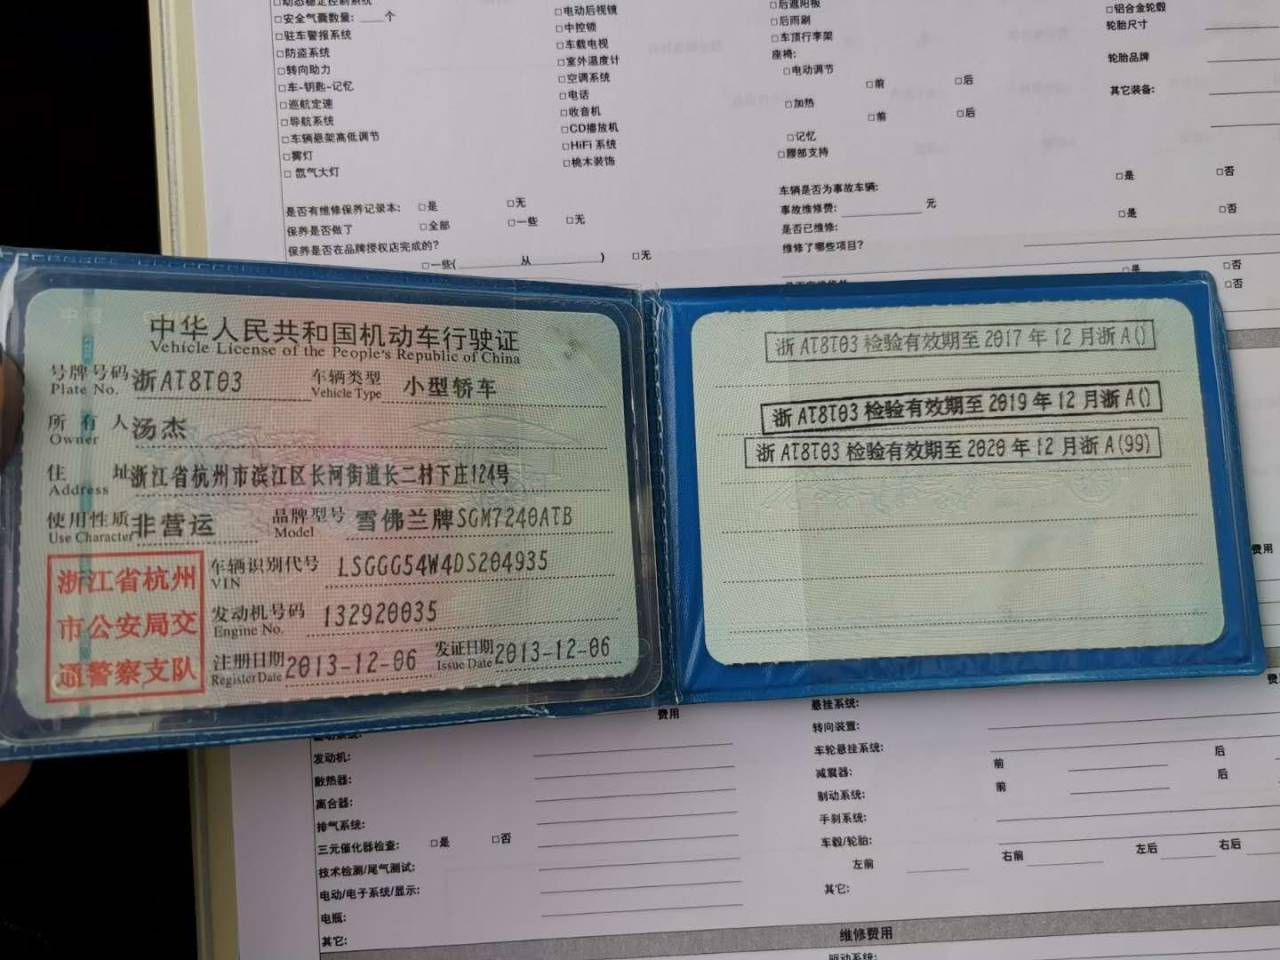 □动态稳定控制系统
□安全气囊数量: ____个
□驻车警报系统
□防盗系统
□转向助力
□车-钥匙-记忆
□巡航定速
□导航系统
□车辆悬架高低调节
□雾灯
□ 氙气大灯
□电动后视镜
□中控锁
□车载电视
□室外温度计
□空调系统
□电话
□收音机
□CD播放机
□HiFi 系统
□桃木装饰
□后遮阳板
□后雨刷
□车顶行李架
座椅:
□电动调节
□前 □后
□加热
□前 □后
□记忆
□腰部支持
□铝合金轮毂
轮胎尺寸
轮胎品牌
其它装备:
是否有维修保养记录本: □是 □无
保养是否做了 □全部 □一些 □无
保养是否在品牌授权店完成的?
□一些( 从 ) □无
车辆是否为事故车辆: □是 □否
事故维修费: 元
是否已维修: □是 □否
维修了哪些项目?
□是 □否
□否
中华人民共和国机动车行驶证
Vehicle License of the People's Republic of China
号牌号码 浙AT8T03 车辆类型 小型轿车
Plate No. Vehicle Type
所有人 汤杰
Owner
住址 浙江省杭州市滨江区长河街道长二村下庄124号
Address
使用性质 非营运 品牌型号 雪佛兰牌SGM7240ATB
Use Character Model
浙江省杭州
市公安局交
通警察支队
车辆识别代号 LSGGG54W4DS204935
VIN
发动机号码 132920035
Engine No.
注册日期 2013-12-06 发证日期 2013-12-06
Register Date Issue Date
浙AT8T03 检验有效期至 2017 年 12 月浙 A()
浙AT8T03 检验有效期至 2019 年 12 月浙 A()
浙AT8T03 检验有效期至 2020 年 12 月浙 A(99)
费用
费用
发动机:
散热器:
离合器:
排气系统:
三元催化器检查: □是 □否
技术检测/尾气测试:
电动/电子系统/显示:
电瓶:
其它:
悬挂系统:
转向装置:
车轮悬挂系统: 前 后
减震器: 前 后
制动系统:
手刹系统:
车毂/轮胎:
左前 右前 左后 右后
其它:
维修费用
驱动系统: